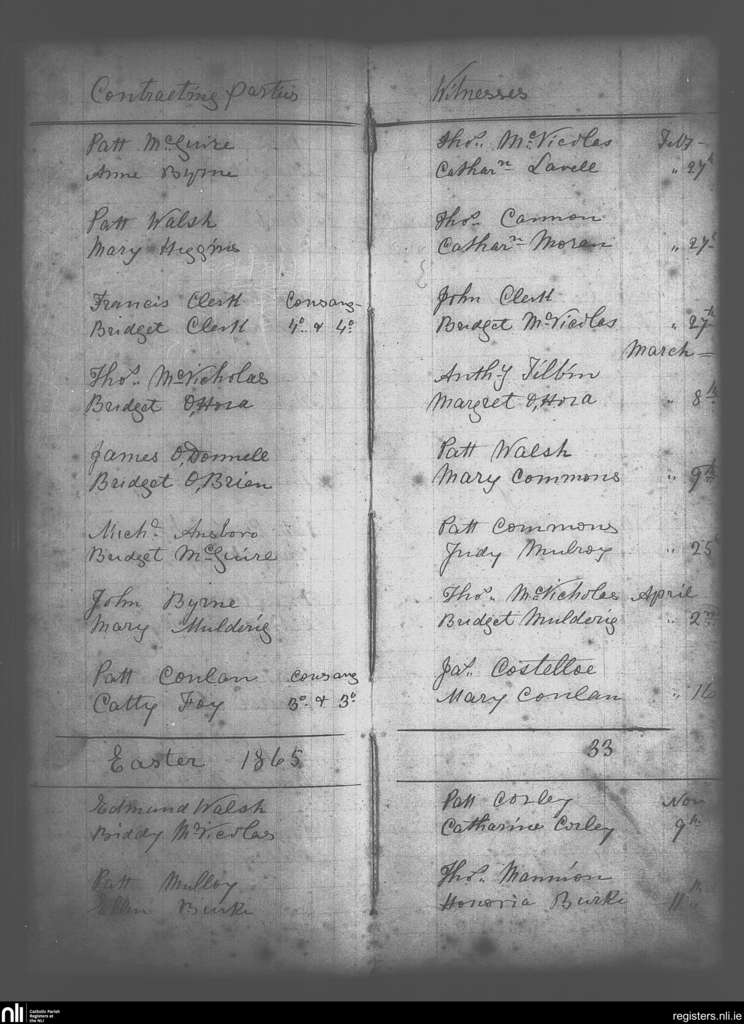 Contracting Parties Witnesses
Patt McGuire Thos. McNicolas Feby
Anne Byrne Catharn Lavell " 27th
Patt Walsh Thos. Cannon
Mary Higgins Catharn Moran " 27th
Francis Clerk Consang- John Clerk
Bridget Clerk 4o. & 4o. Bridget McNicolas " 27th
March
Thos. McNicholas Anthy
Bridget O,Hora Margret O,Hora " 8th
James O,Donnell Patt Walsh
Bridget O,Brien Mary Commons " 9th
Michl. Ansboro Patt Commons
Bridget McGuire Judy Mulroy " 25th
John Byrne Thos. McNicholas April
Mary Mulderig Bridget Mulderig " 2nd
Patt Conlan Consang Jas. Costelloe
Catty Foy 3o. & 3o. Mary Conlan " 16
Easter 1865 33
Edmund Walsh Patt Corley Nov
Biddy McNicolas Catharine Corley 9th
Patt Mulloy Thos. Mannion
Ellen Burke Honoria Burke 11th
nli Catholic Parish Registers at the NLI registers.nli.ie